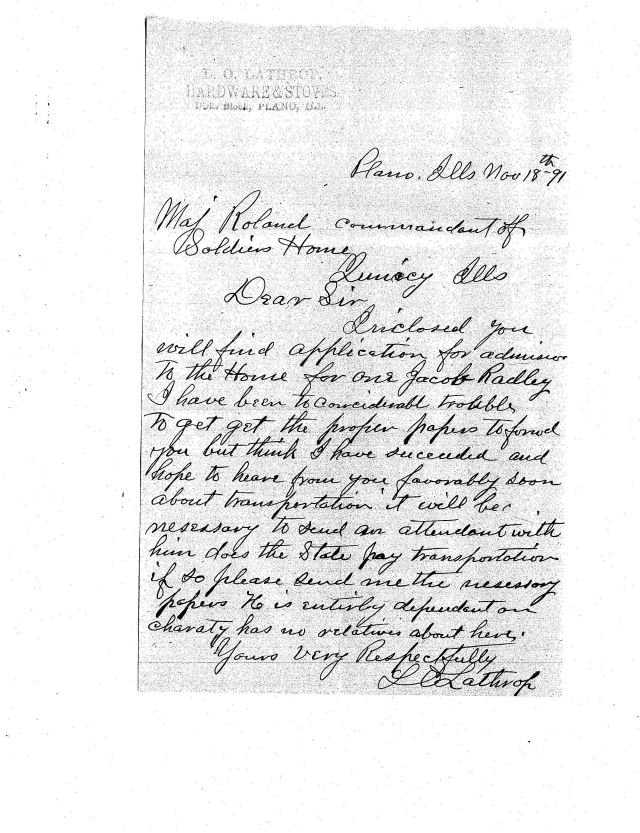 L. O. LATHROP,
HARDWARE & STOVES.
Block, PLANO, ILL.
Plano. Ills Nov 18th 91
Maj Roland commandant of
Soldiers Home
Quincey Ills
Dear Sir
Inclosed you
will find application for admision
to the Home for one Jacob Radley
I have been to conciderabl trobble
to get get the proper papers to forwd
you but think I have succeeded and
hope to heare from you favorably soon
about transportation it will be
nesessary to send an attendant with
him does the State pay transportation
if so please send me the nesessory
papers He is entirly dependant on
charaty has no relatives about here.
Yours Very Respectfully
L O Lathrop